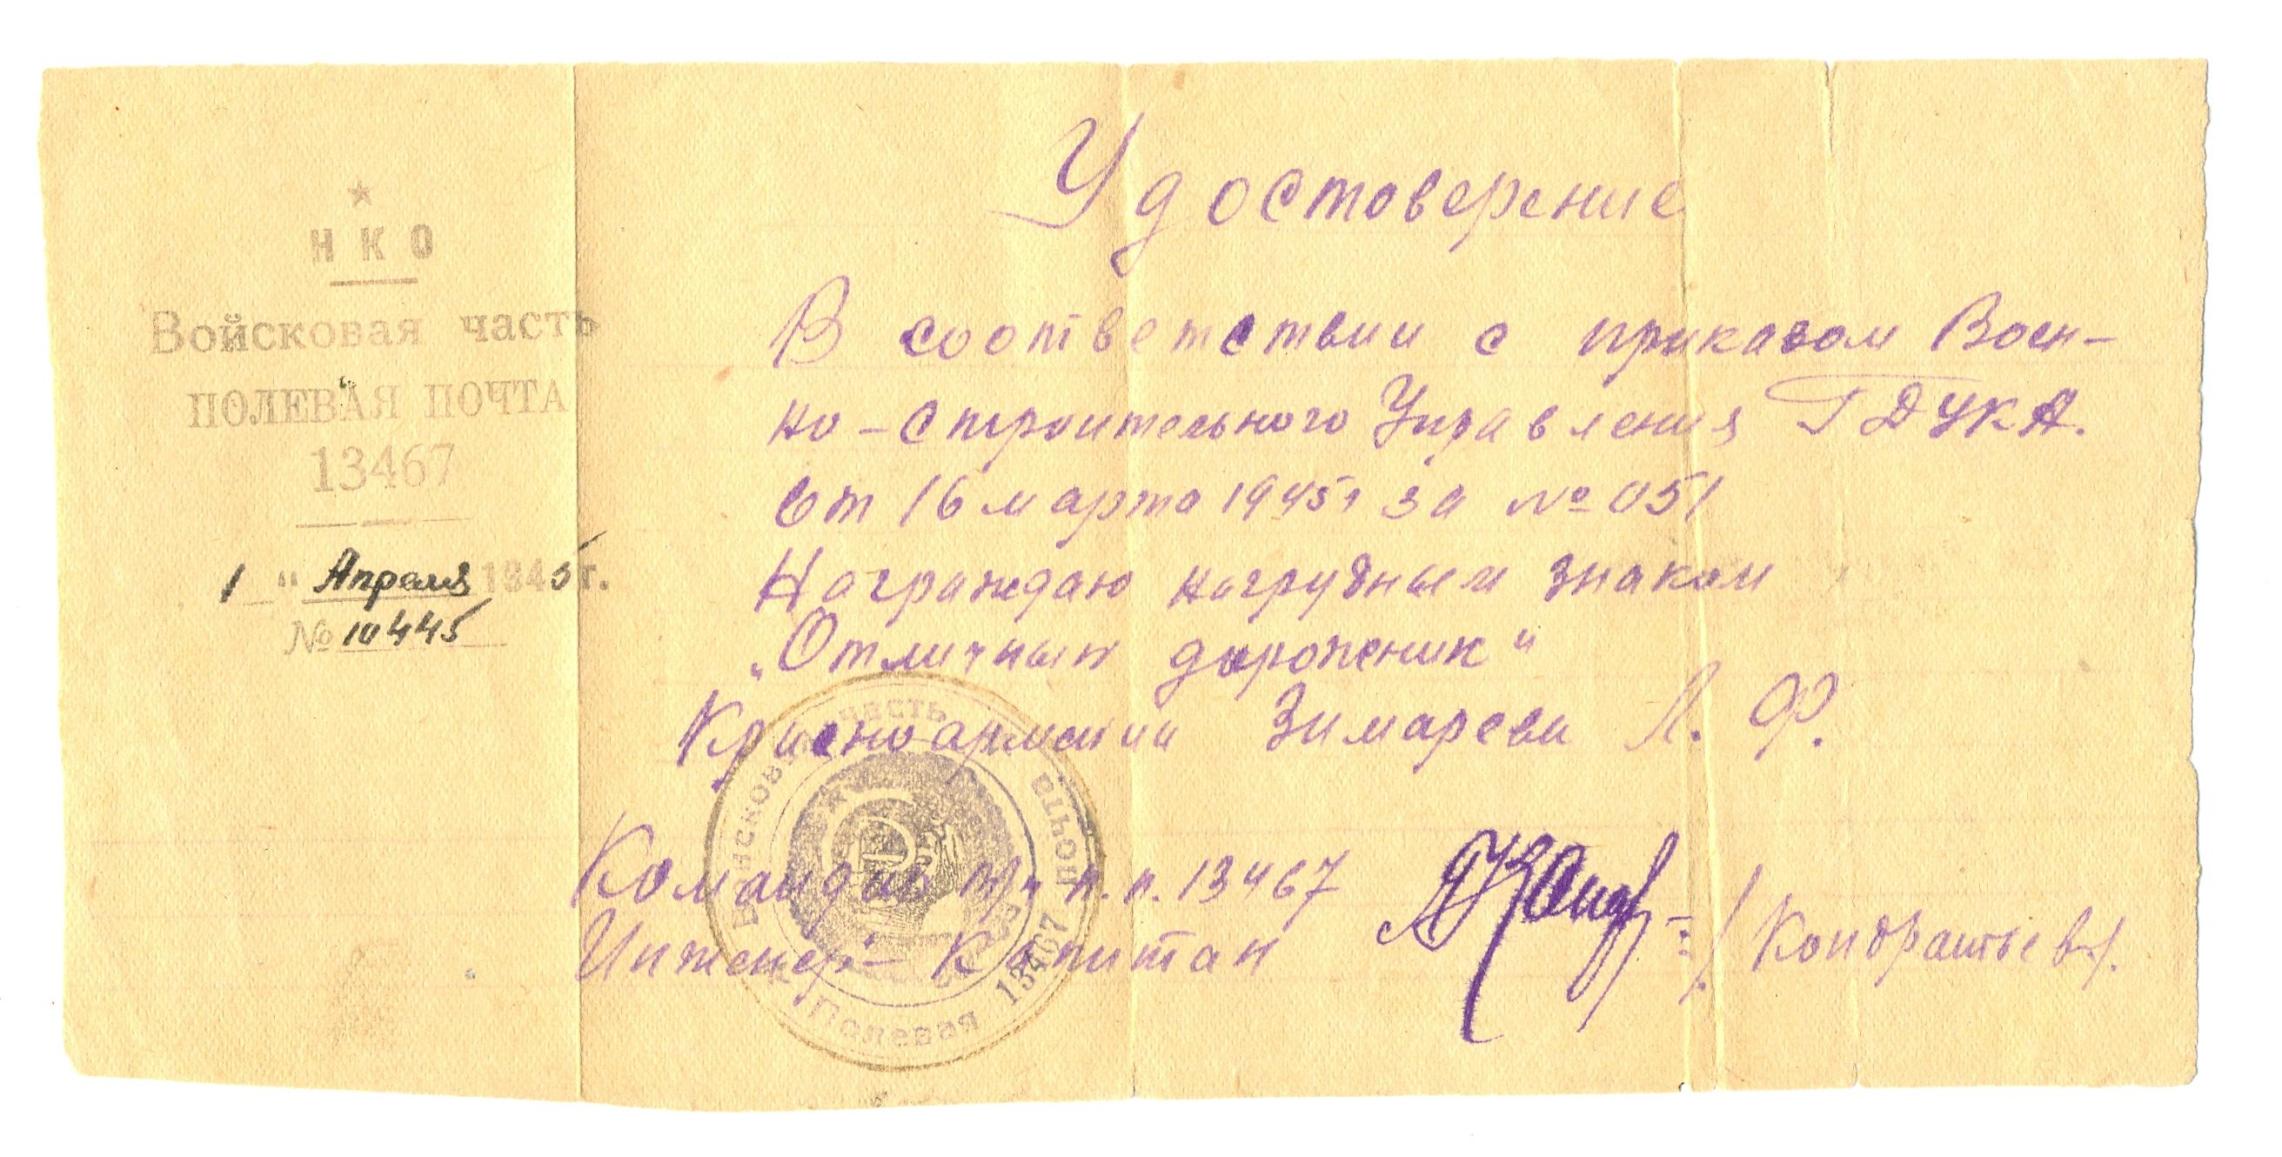 НКО
Войсковая часть
ПОЛЕВАЯ ПОЧТА
13467
1 " Апреля 1945 г.
№ 10445
Удостоверение
В соответствии с приказом Воен-
но-строительного Управления ГДУКА.
От 16 марта 1945г за № 051
Награждаю нагрудным знаком
„Отличный дорожник"
Красноармейца Зимарева Л. Ф.
Командир п.п. 13467
Инженер-Капитан
/Кондратьев/.
Войсковая часть
Полевая почта
13467